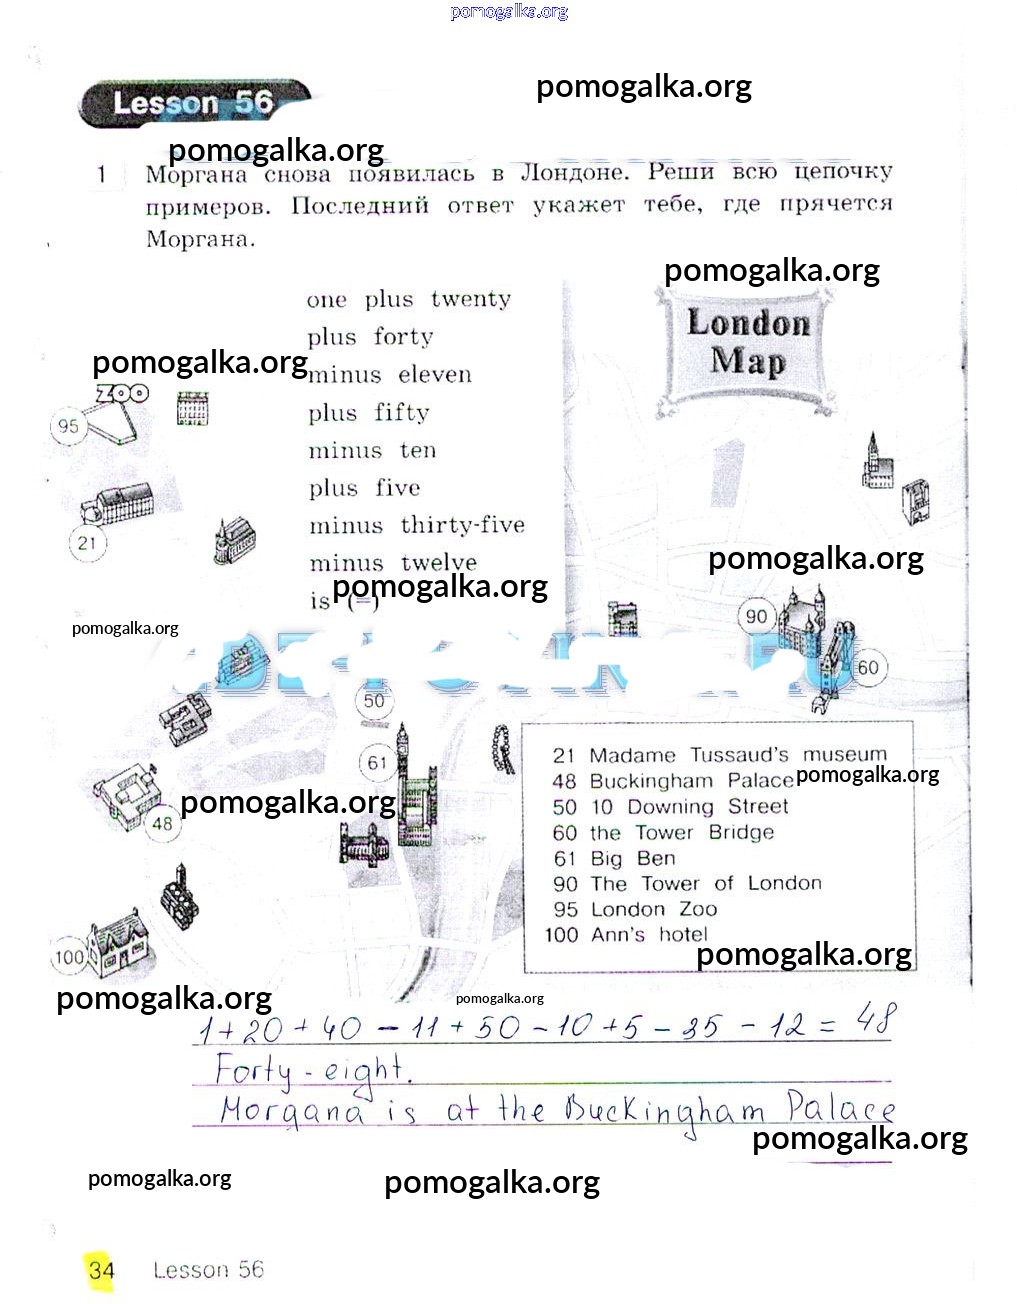 pomogalka.org
pomogalka.org
Lesson 56
pomogalka.org
1 Моргана снова появилась в Лондоне. Реши всю цепочку
примеров. Последний ответ укажет тебе, где прячется
Моргана.
pomogalka.org
London
Map
one plus twenty
plus forty
pomogalka.org
minus eleven
plus fifty
minus ten
plus five
minus thirty-five
minus twelve
is (=)
ZOO
95
21
pomogalka.org
pomogalka.org
pomogalka.org
90
60
50
61
48
100
pomogalka.org
21 Madame Tussaud's museum
48 Buckingham Palace
pomogalka.org
50 10 Downing Street
60 the Tower Bridge
61 Big Ben
90 The Tower of London
95 London Zoo
100 Ann's hotel
pomogalka.org
pomogalka.org
pomogalka.org
1+20+40-11+50-10+5-35-12=48
Forty-eight.
Morgana is at the Buckingham Palace
pomogalka.org
pomogalka.org
pomogalka.org
34 Lesson 56